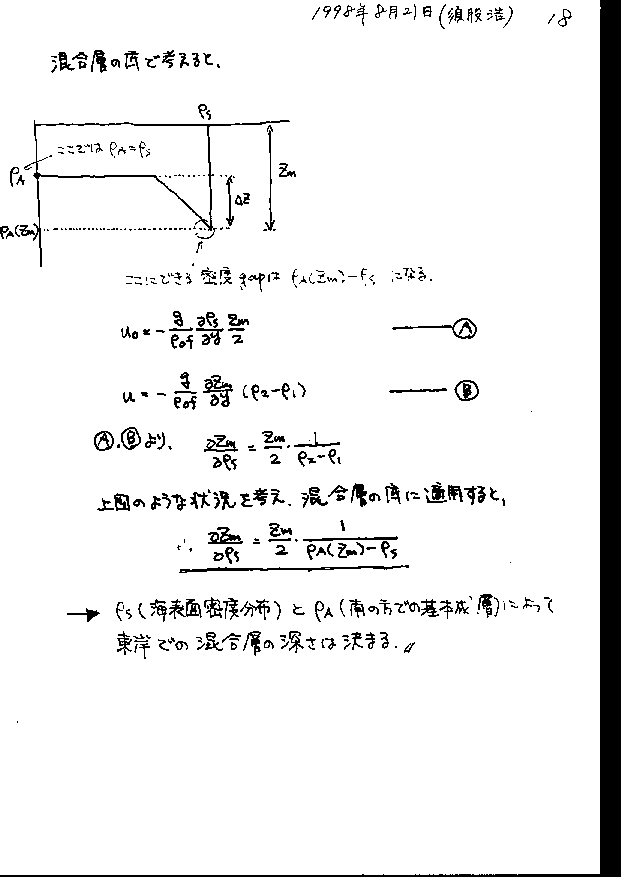 1998年8月21日(須股浩) 18
混合層の底で考えると、
ρs
ここでは ρA=ρs
ρA
Zm
ΔZ
ρA(Zm)
ここにできる密度gapは ρA(Zm)-ρs になる.
u₀ = - g/ρ₀f ∂ρs/∂y Zm/2 ——— Ⓐ
u = - g/ρ₀f ∂Zm/∂y (ρ₂-ρ₁) ——— Ⓑ
Ⓐ,Ⓑより、 ∂Zm/∂ρs = Zm/2 · 1/ρ₂-ρ₁
上図のような状況を考え、混合層の底に適用すると,
∴ ∂Zm/∂ρs = Zm/2 · 1/ρA(Zm)-ρs
→ ρs(海表面密度分布)と ρA(南の方での基本成層)によって
東岸での混合層の深さは決まる.〃